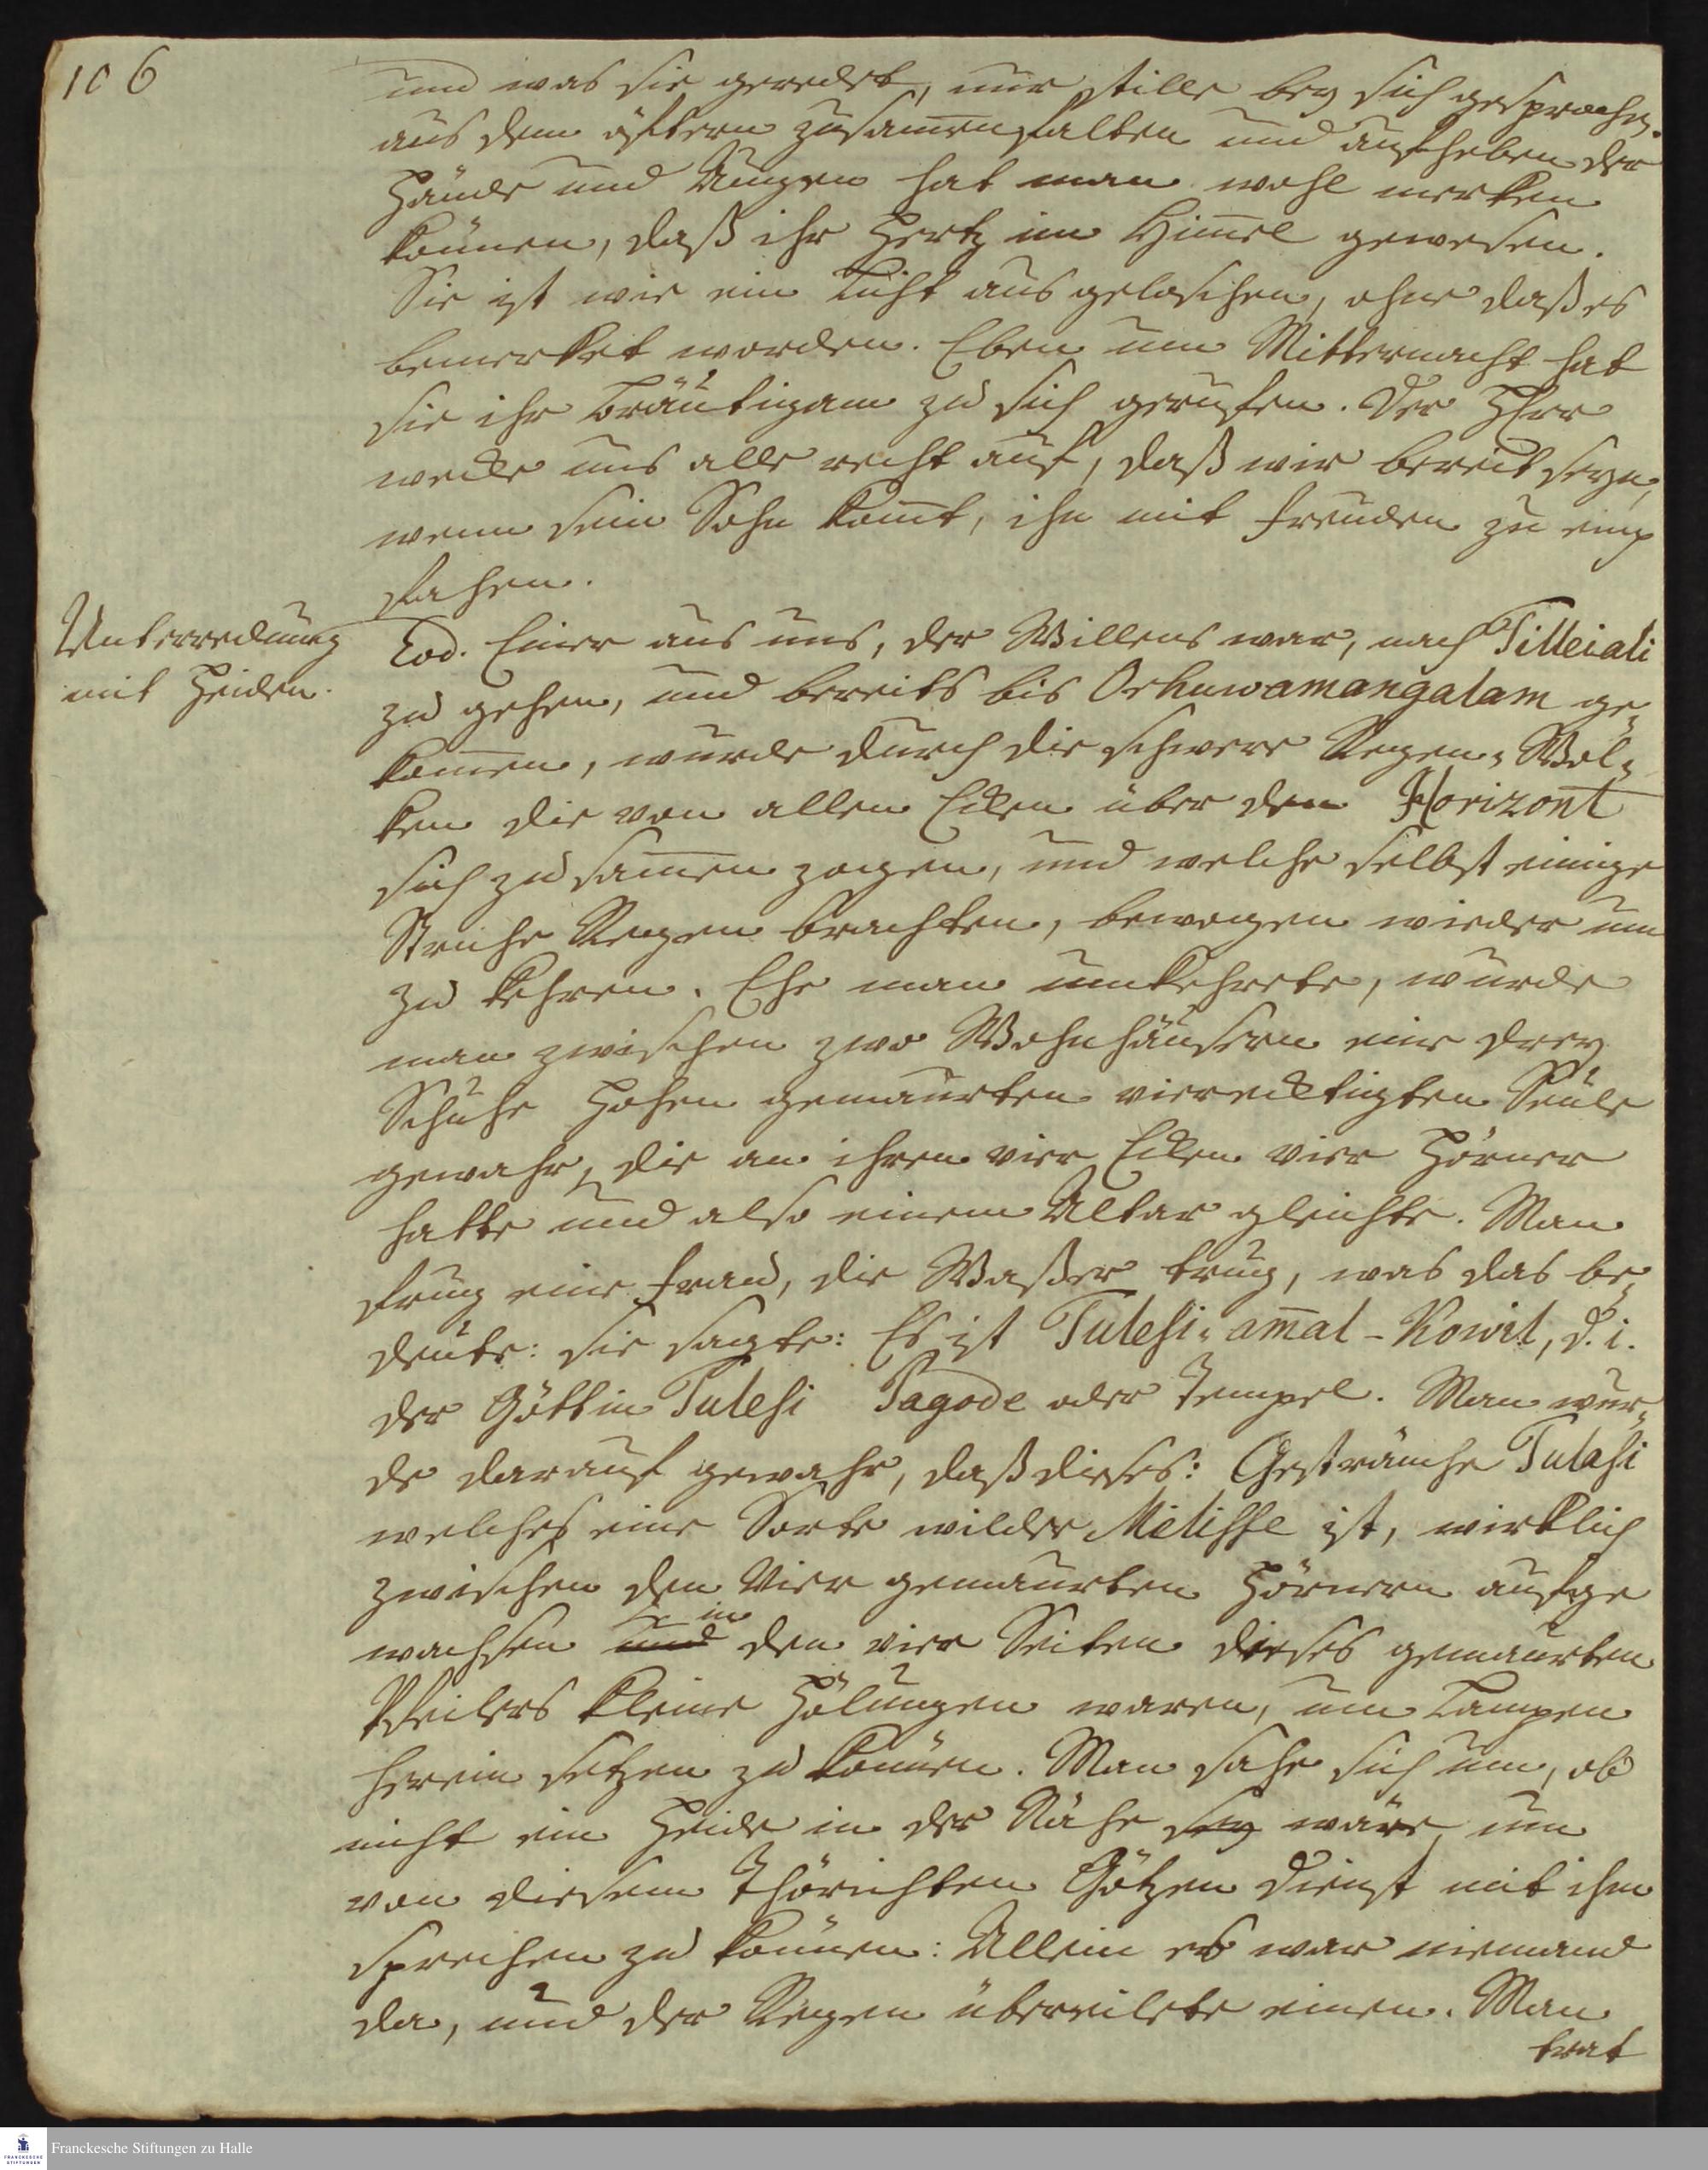 106
und was sie geredet, nur stille bey sich gesprochen.
aus dem öftern zusam̅enfalten und aufheben der
Hände und Augen hat man wohl merken
können, daß ihr Hertz im Him̅el gewesen.
Sie ist wie ein Licht ausgeloschen, ohne daß es
bemerket worden. Eben um Mitternacht hat
sie ihr Bräutigam zu sich gerufen. Der HErr
wecke uns alle recht auf, daß wir bereit seyn,
wenn sein Sohn kom̅t, ihn mit Freuden zu emp
fahen.
Unterredung
mit Heiden.
Eod. Einer aus uns, der Willens war, nach Tilleiali
zu gehen, und bereits bis Orhuwamangalam ge„
kom̅en, wurde durch die schwere Regen„Wol„
ken die von allen Ecken über den Horizont
sich zusam̅en zogen, und welche selbst einige
Striche Regen brachten, bewogen wieder um
zu kehren. Ehe man umkehrete, wurde
man zwischen zwo Wohnhäusern eine drey
Schuhe hohen gemaurten vierecktigten Seule
gewahr, die an ihren vier Ecken vier Hörner
hatte und also einem Altar gleichte. Man
frug eine Frau, die Waßer trug, was das be„
deute: sie sagte: Es ist Tulesi„am̅al-Kowil, d. i.
der Göttin Tulesi Pagode oder Tempel. Man wur„
de darauf gewahr, daß dieses: Gesträuche Tulasi
welches eine Sorte wilder Melisse ist, wirklich
zwischen den Vier gemaurten Hörnern aufge
wachsen und in den vier Seiten dieses gemaurten
Pfeilers kleine Hölungen waren, um Lampen
herein setzen zu können. Man sahe sich um, ob
nicht ein Heide in der Nähe sey wäre, um
von diesem thörichten Götzen Dienst mit ihm
sprechen zu können: Allein es war niemand
da, und der Regen übereilete einen. Man
trat
Franckesche Stiftungen zu Halle